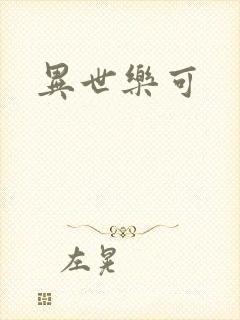 異世樂可
左晃